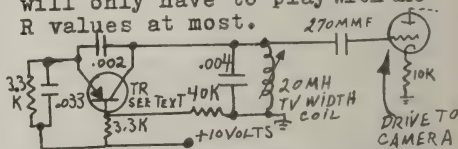 will only have to play with the
R values at most.
270MMF
.002
.004
3.3
K
.033
TR
SEE TEXT
40K
20MH
TV WIDTH
COIL
10K
3.3K
+10VOLTS
DRIVE TO
CAMERA